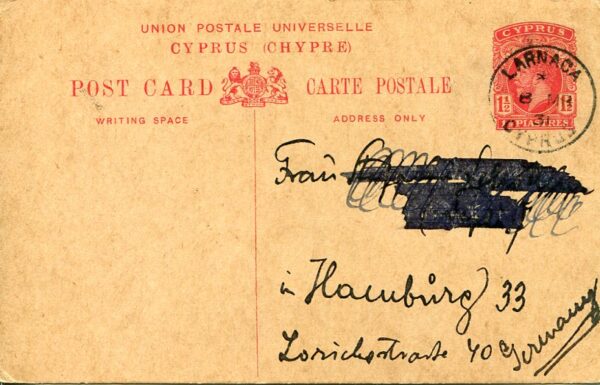 UNION POSTALE UNIVERSELLE
CYPRUS (CHYPRE)
POST CARD CARTE POSTALE
WRITING SPACE ADDRESS ONLY
CYPRUS
1½ 1½
PIASTRES
LARNACA
8 MR
31
CYPRUS
Frau
in Hamburg 33
Lorichsstraße 40 Germany